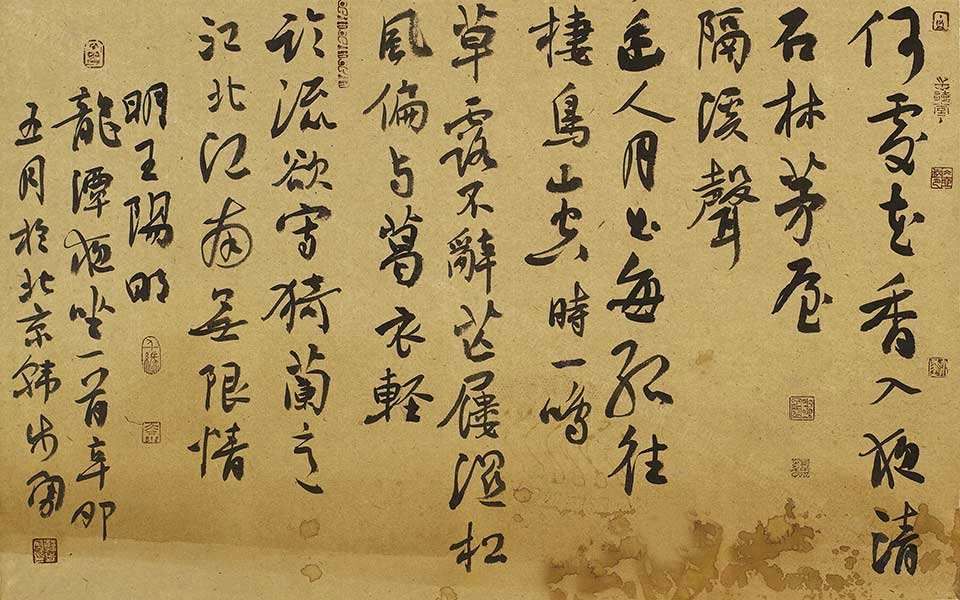 何處花香入夜清
石林茅屋
隔溪聲
幽人月出每孤往
棲鳥山空時一鳴
草露不辭芒屨濕松
風偏与葛衣輕
臨流欲寫猗蘭意
江北江南無限情
明王陽明
龍潭夜坐一首辛卯
五月於北京韩